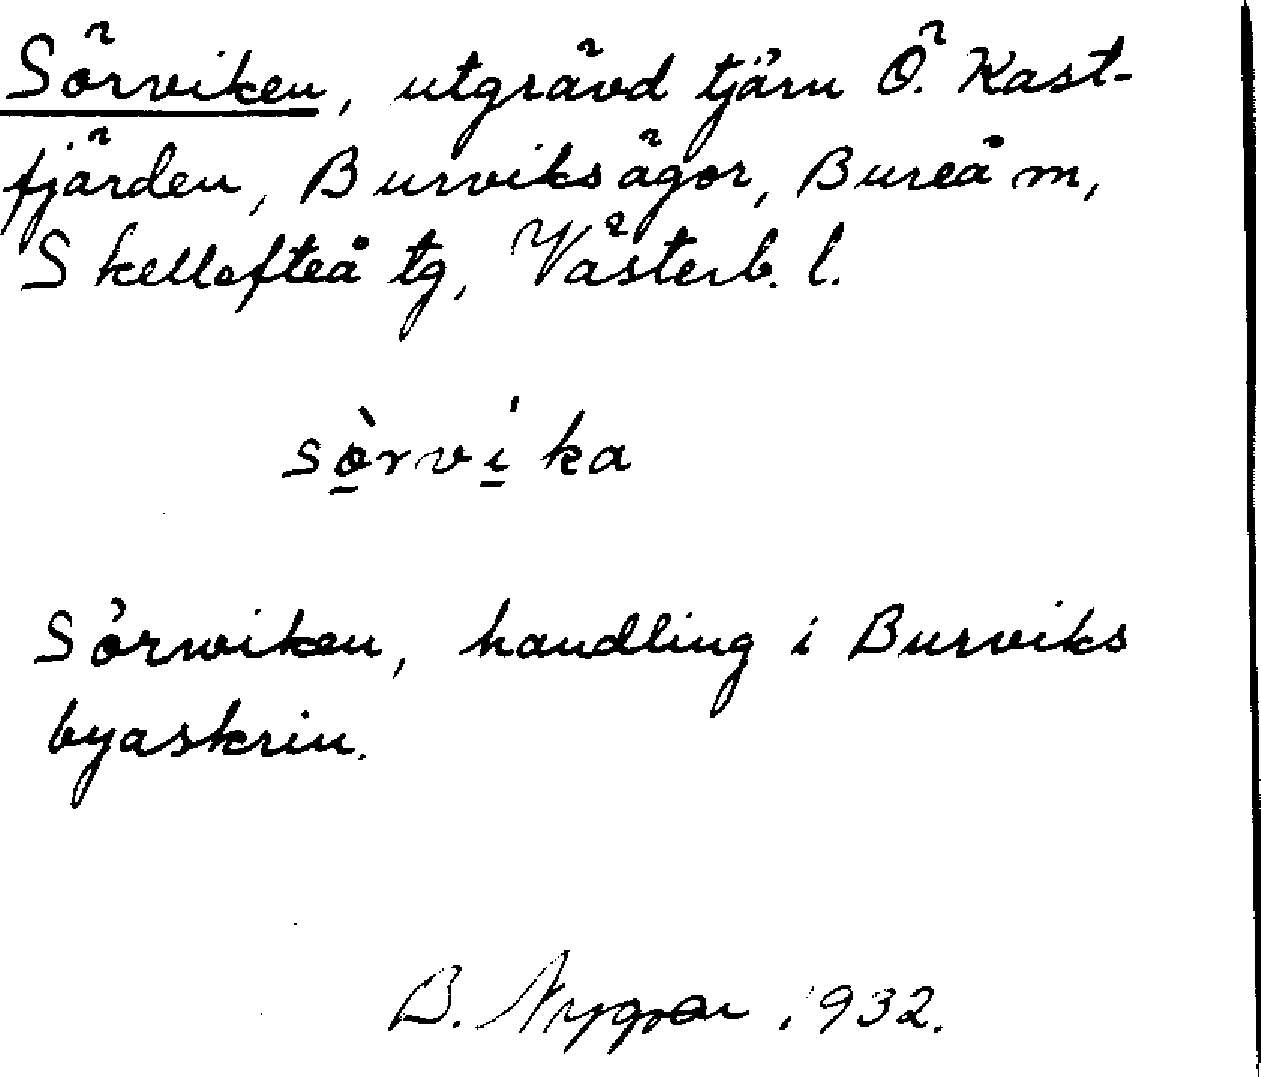 Sörviken, utgrävd tjärn Ö. Kast-
fjärden, Burviks ägor, Bureå m,
Skellefteå tg, Västerb. l.
sò̱rví̱ka
Sörwiken, handling i Burviks
byaskrin.
B. Nygren 1932.